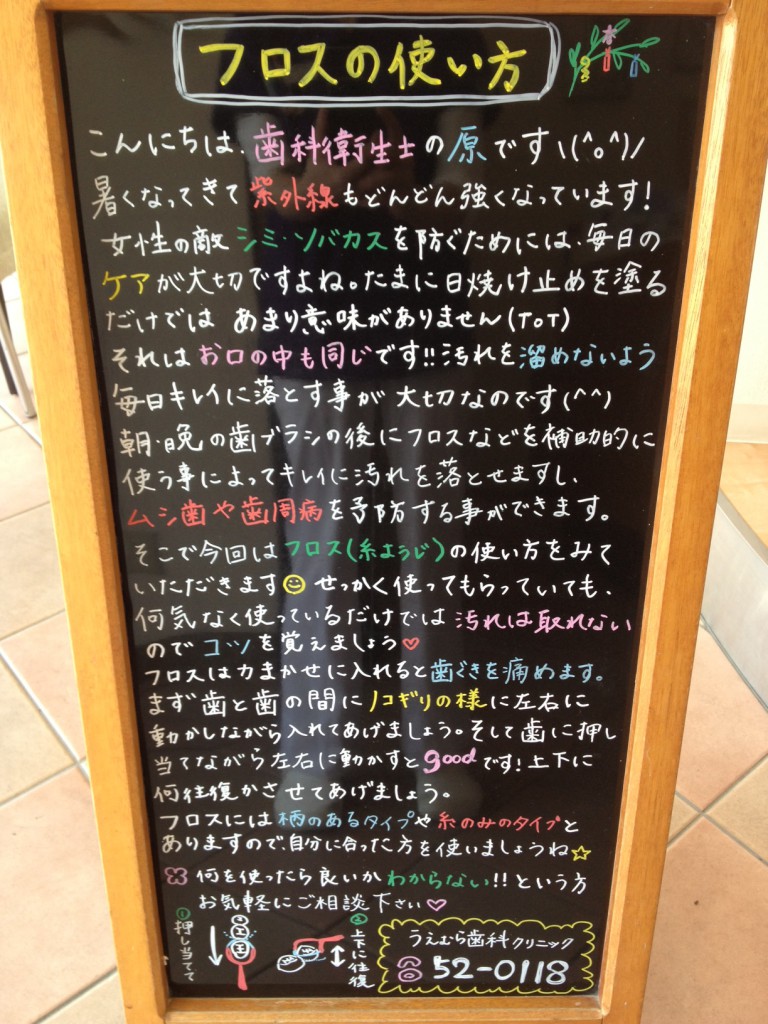 フロスの使い方
こんにちは、歯科衛生士の原です\(^o^)/
暑くなってきて紫外線もどんどん強くなっています!
女性の敵シミ・ソバカスを防ぐためには、毎日の
ケアが大切ですよね。たまに日焼け止めを塗る
だけでは あまり意味がありません(ToT)
それはお口の中も同じです!!汚れを溜めないよう
毎日キレイに落とす事が大切なのです(^^)
朝・晩の歯ブラシの後にフロスなどを補助的に
使う事によってキレイに汚れを落とせますし、
ムシ歯や歯周病を予防する事ができます。
そこで今回はフロス(糸ようじ)の使い方をみて
いただきます☺せっかく使ってもらっていても、
何気なく使っているだけでは汚れは取れない
のでコツを覚えましょう♡
フロスは力まかせに入れると歯ぐきを痛めます。
まず歯と歯の間にノコギリの様に左右に
動かしながら入れてあげましょう。そして歯に押し
当てながら左右に動かすとgoodです!上下に
何往復かさせてあげましょう。
フロスには柄のあるタイプや糸のみのタイプと
ありますので自分に合った方を使いましょうね☆
何を使ったら良いかわからない!!という方
お気軽にご相談下さい♡
①押し当てて
②上下に往復
うえむら歯科クリニック
☎52-0118